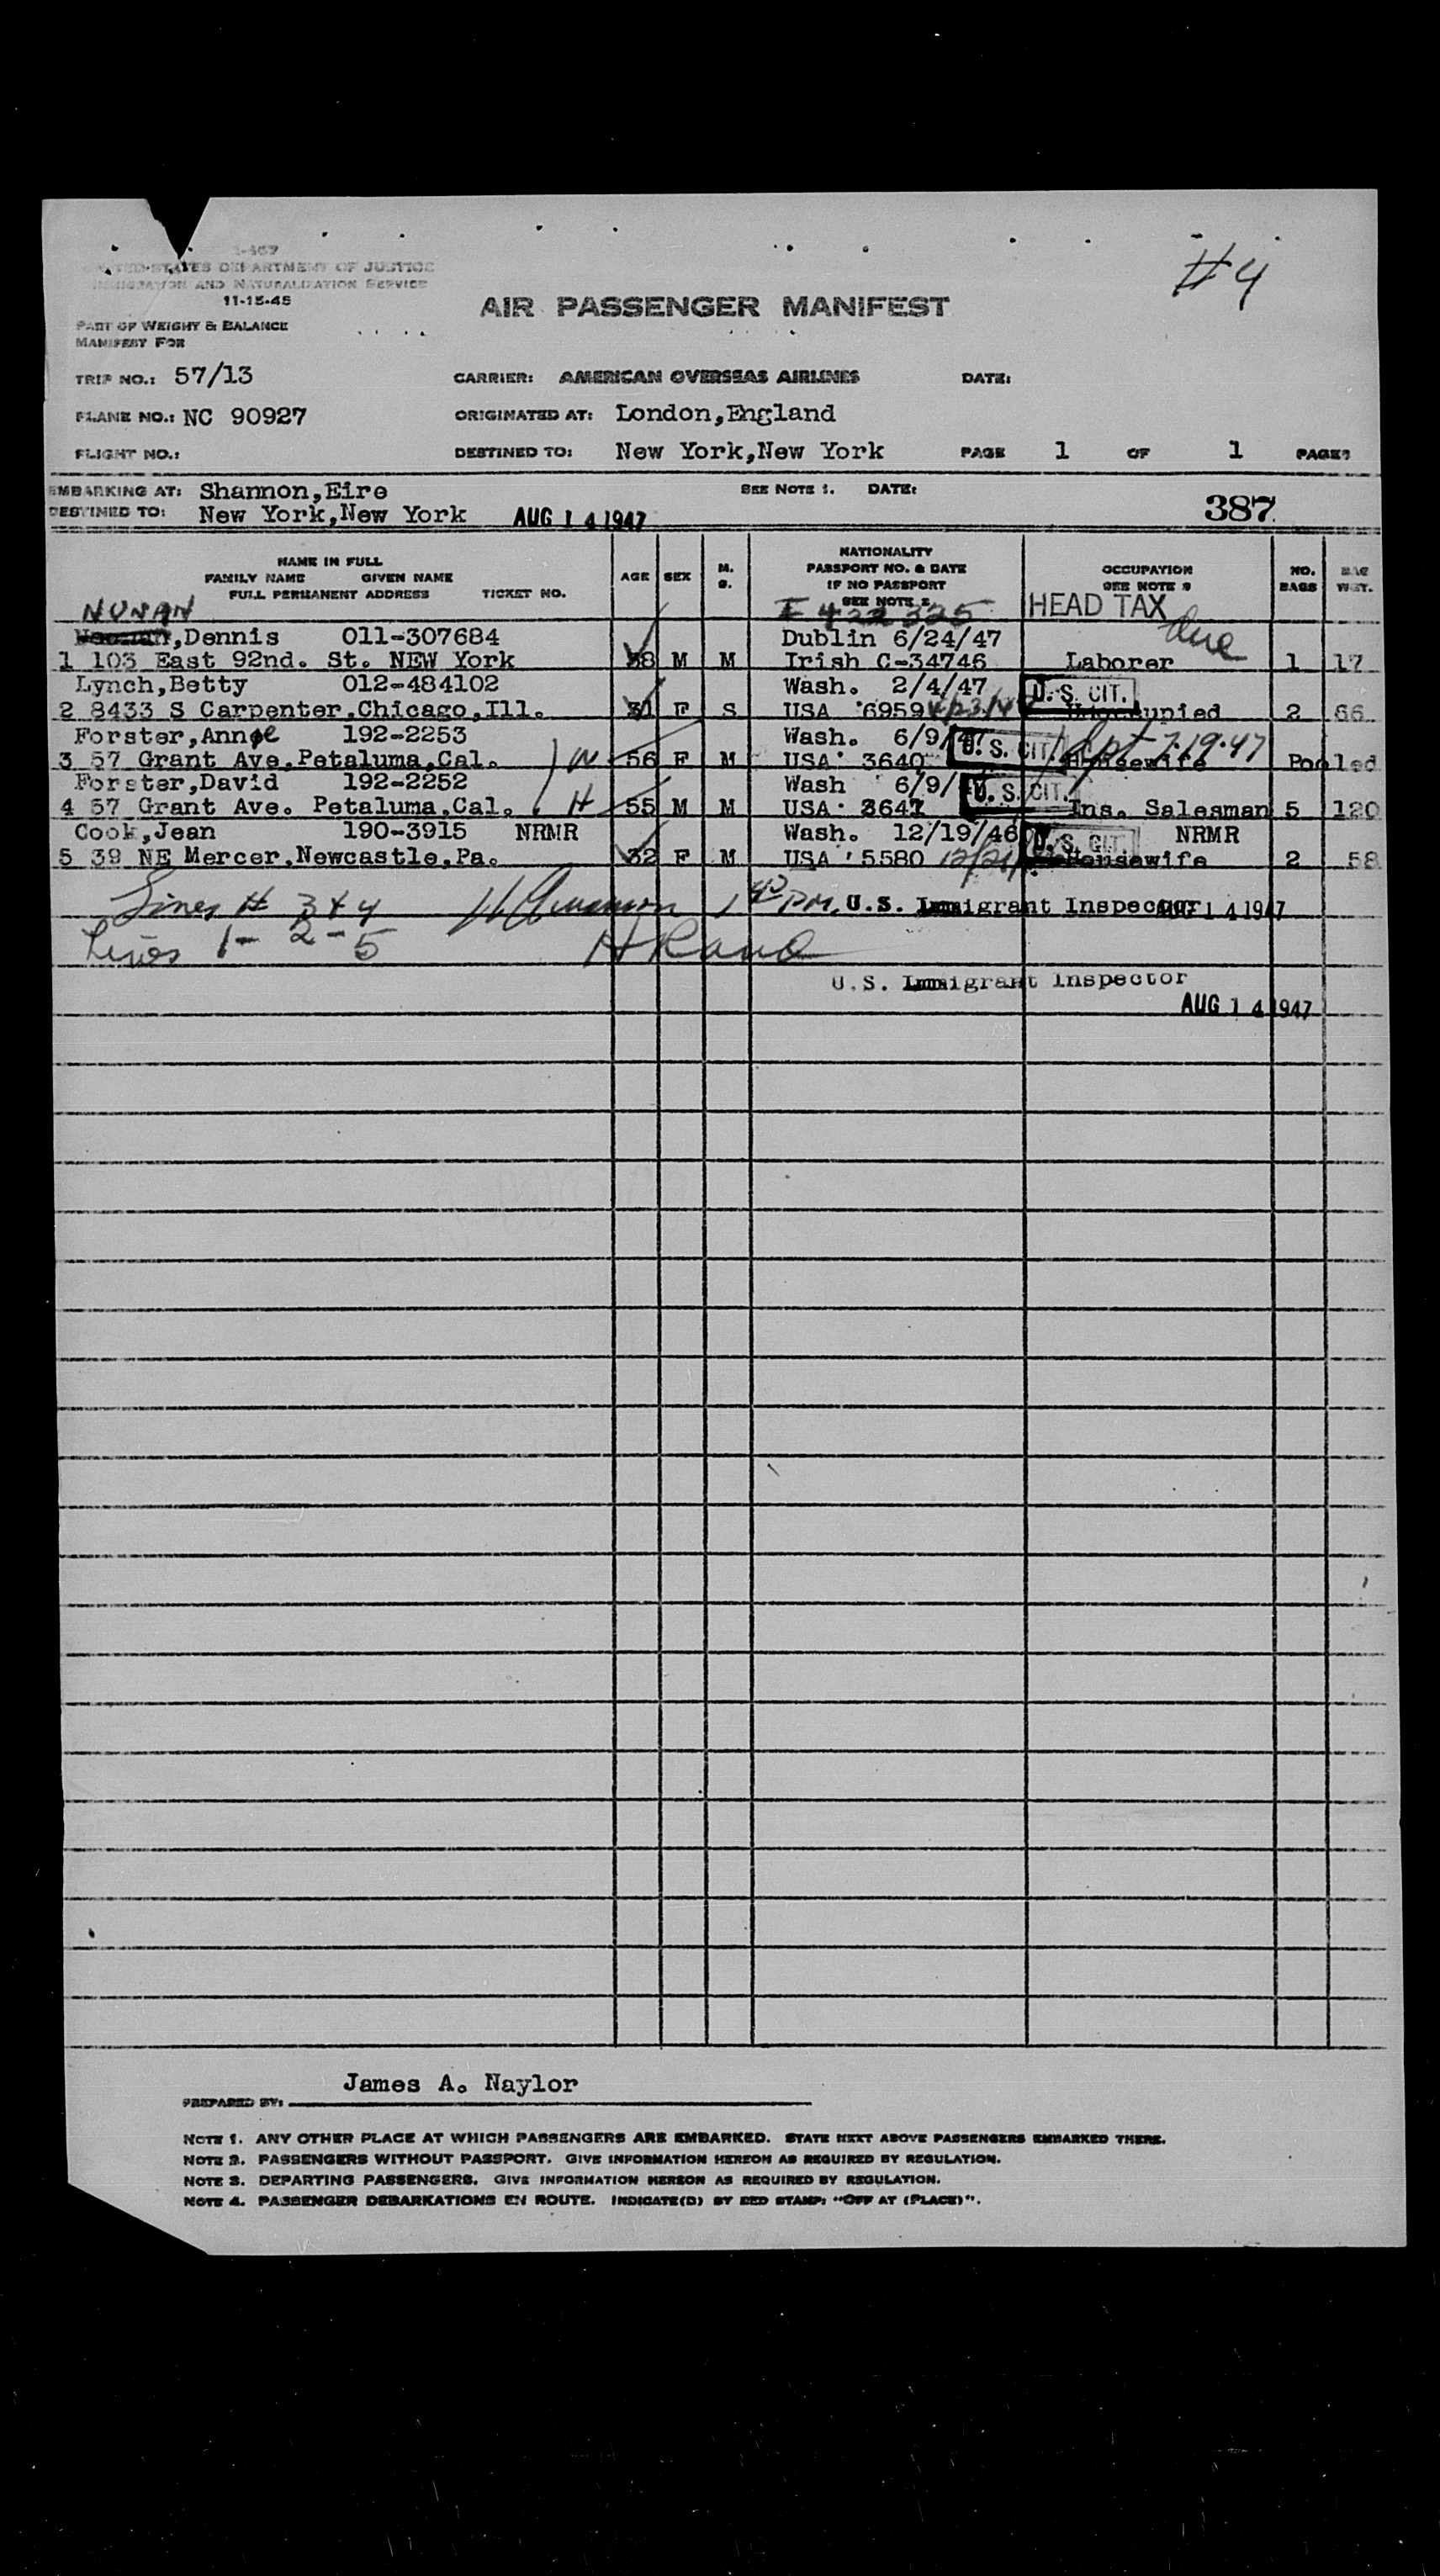 I-467
UNITED STATES DEPARTMENT OF JUSTICE
IMMIGRATION AND NATURALIZATION SERVICE
11-15-45
#4
AIR PASSENGER MANIFEST
PART OF WEIGHT & BALANCE
MANIFEST FOR
TRIP NO.: 57/13 CARRIER: AMERICAN OVERSEAS AIRLINES DATE:
PLANE NO.: NC 90927 ORIGINATED AT: London,England
FLIGHT NO.: DESTINED TO: New York,New York PAGE 1 OF 1 PAGES
EMBARKING AT: Shannon,Eire SEE NOTE 1. DATE:
DESTINED TO: New York,New York AUG 14 1947 387
NAME IN FULL
FAMILY NAME GIVEN NAME
FULL PERMANENT ADDRESS TICKET NO.
AGE SEX M. S.
NATIONALITY
PASSPORT NO. & DATE
IF NO PASSPORT
SEE NOTE 2
OCCUPATION
SEE NOTE 3
NO. BAGS
BAG WGT.
NUNAN I 422325 HEAD TAX due
,Dennis 011-307684 Dublin 6/24/47
1 103 East 92nd. St. NEW York 38 M M Irish C-34746 Laborer 1 17
Lynch,Betty 012-484102 Wash. 2/4/47 U.S. CIT.
2 8433 S Carpenter.Chicago,Ill. 31 F S USA 6959 Unoccupied 2 66
Forster,Anne 192-2253 Wash. 6/9/ U.S. CIT. 7-19-47
3 57 Grant Ave.Petaluma,Cal. W 56 F M USA 3640 Housewife Pooled
Forster,David 192-2252 Wash 6/9/ U.S. CIT.
4 57 Grant Ave. Petaluma,Cal. H 55 M M USA 3641 Ins. Salesman 5 120
Cook,Jean 190-3915 NRMR Wash. 12/19/46 U.S. CIT. NRMR
5 39 NE Mercer,Newcastle,Pa. 32 F M USA 5580 Housewife 2 58
Lines # 3+4 1 40 PM. U.S. Immigrant Inspector AUG 14 1947
Lines 1- 2-5
U.S. Immigrant Inspector
AUG 14 1947
James A. Naylor
PREPARED BY:
NOTE 1. ANY OTHER PLACE AT WHICH PASSENGERS ARE EMBARKED. STATE NEXT ABOVE PASSENGERS EMBARKED THERE.
NOTE 2. PASSENGERS WITHOUT PASSPORT. GIVE INFORMATION HEREON AS REQUIRED BY REGULATION.
NOTE 3. DEPARTING PASSENGERS. GIVE INFORMATION HEREON AS REQUIRED BY REGULATION.
NOTE 4. PASSENGER DEBARKATIONS EN ROUTE. INDICATE(D) BY RED STAMP: "OFF AT (PLACE)".